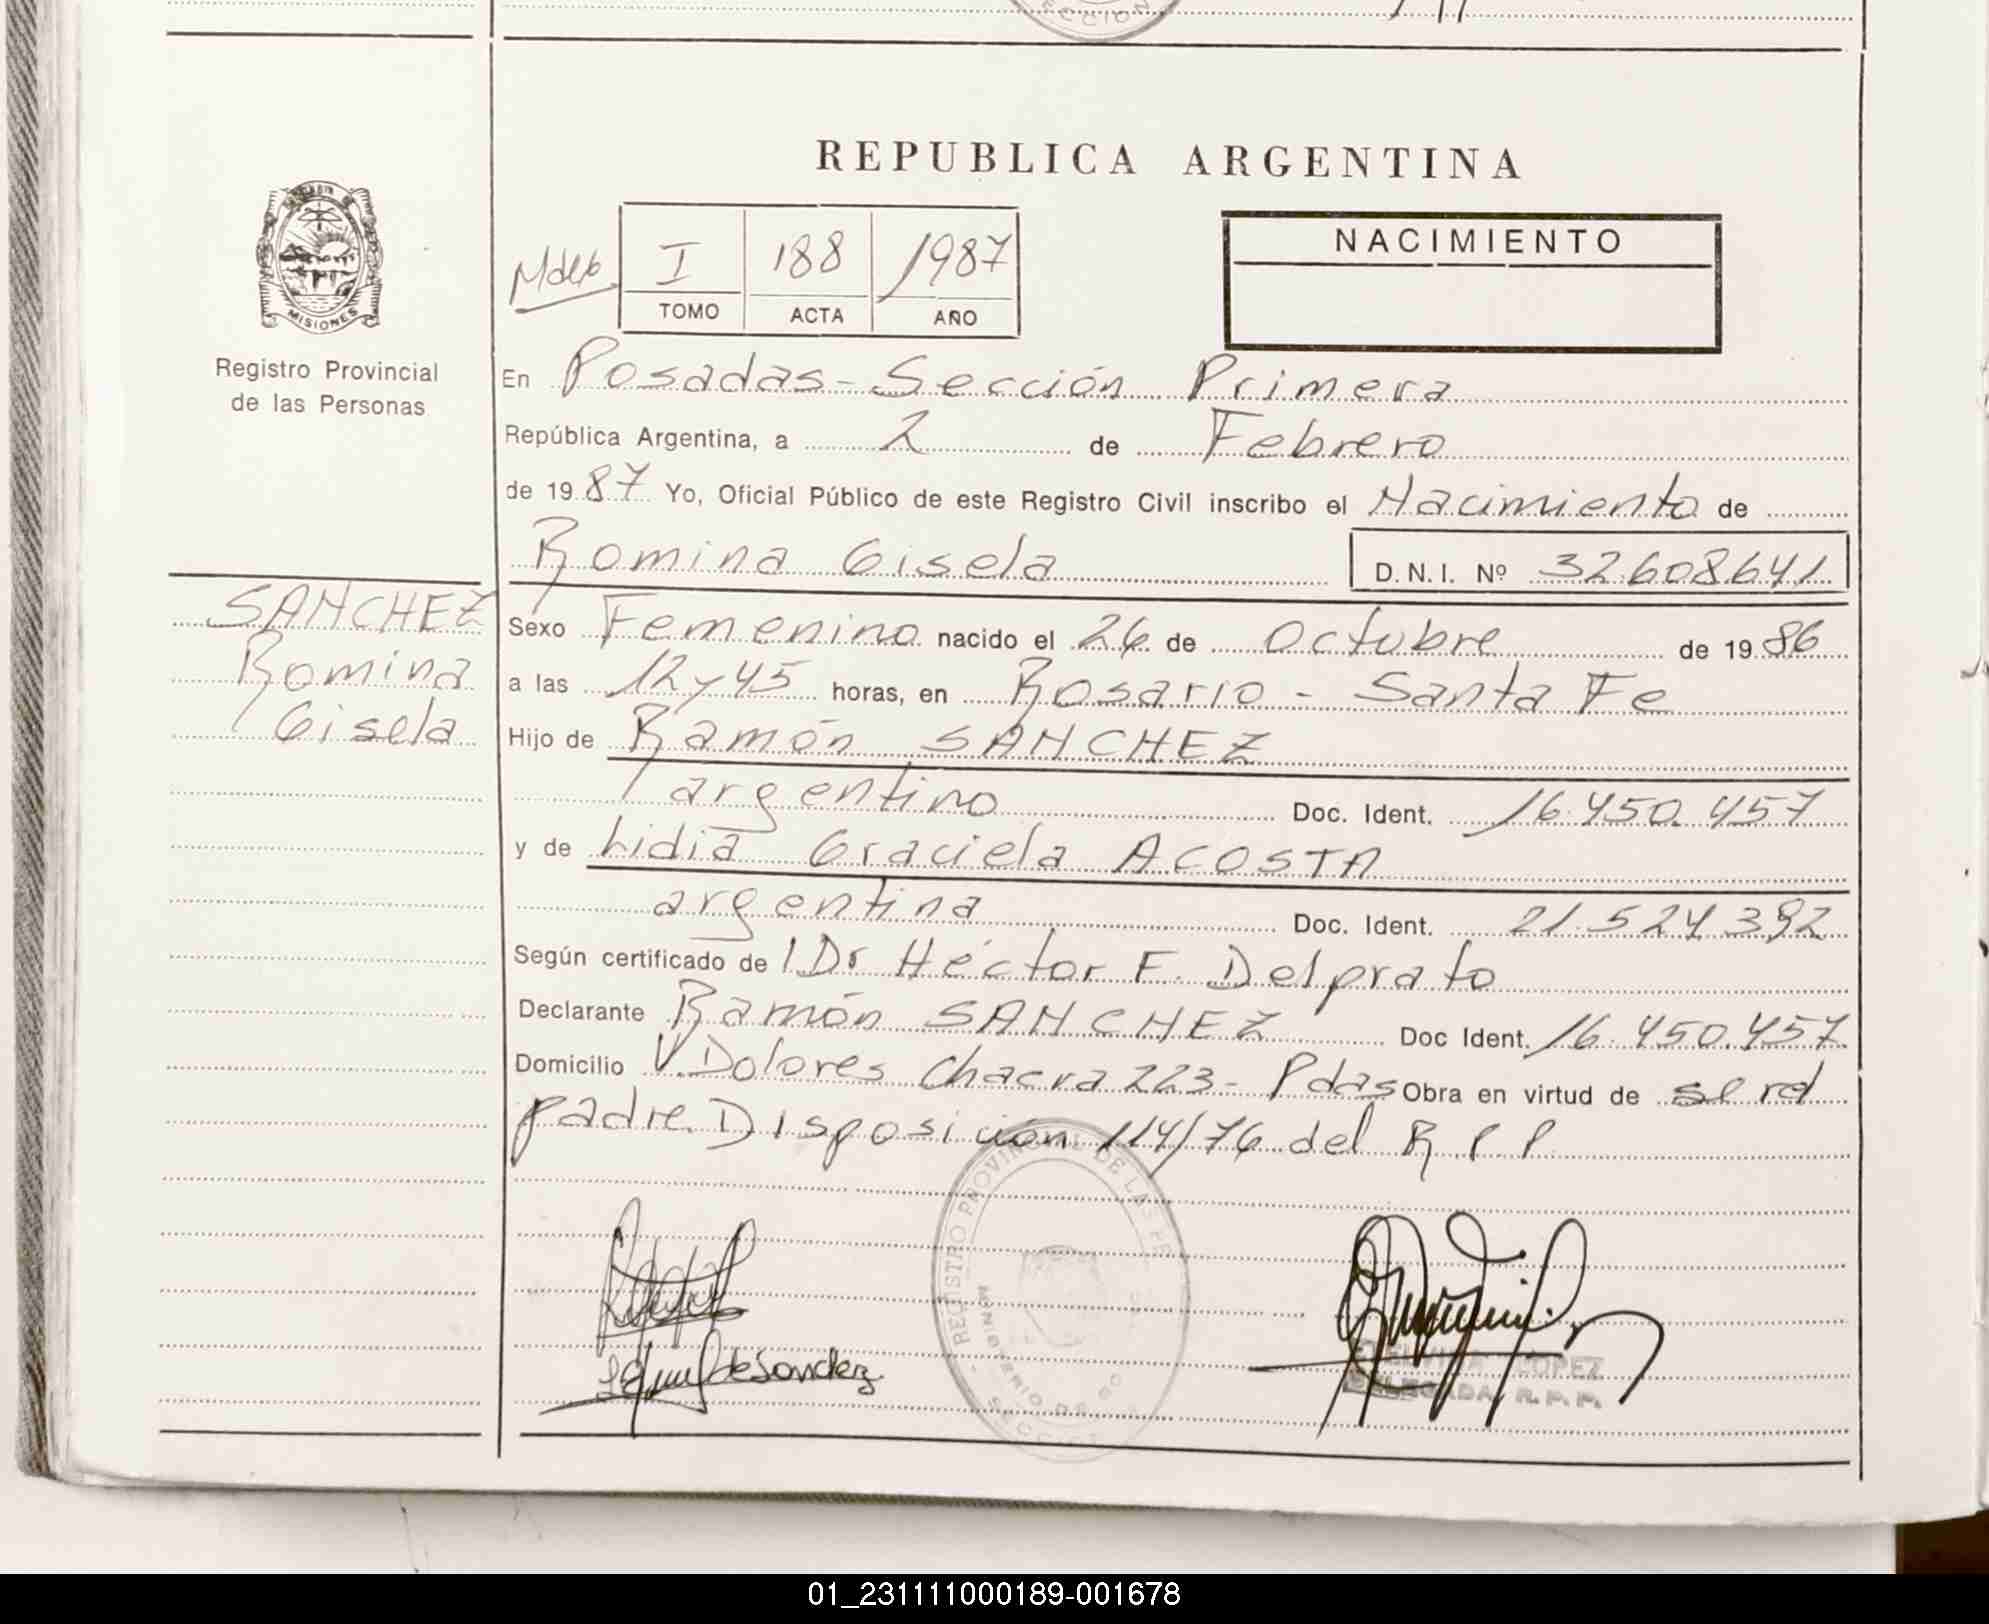 SECCION
REPUBLICA ARGENTINA
MISIONES
I 188 1987
TOMO ACTA AÑO
NACIMIENTO
Registro Provincial
de las Personas
En Posadas - Sección Primera
República Argentina, a 2 de Febrero
de 1987 Yo, Oficial Público de este Registro Civil inscribo el Nacimiento de
Romina Gisela D.N.I. Nº 32.608.641
SANCHEZ
Romina
Gisela
Sexo Femenino nacido el 26 de Octubre de 1986
a las 12 y 45 horas, en Rosario - Santa Fe
Hijo de Ramón SANCHEZ
argentino Doc. Ident. 16.450.457
y de Lidia Graciela ACOSTA
argentina Doc. Ident. 21.524.392
Según certificado de l Dr Héctor F. Delprato
Declarante Ramón SANCHEZ Doc Ident. 16.450.457
Domicilio V. Dolores Chacra 223 - Pdas Obra en virtud de ser el
padre. Disposición 114/76 del R P P
REGISTRO PROVINCIAL DE LAS PER
MINISTERIO DE GO
SECCION
de Sanchez
ETELVINA LOPEZ
DELEGADA R.P.P.
01_231111000189-001678